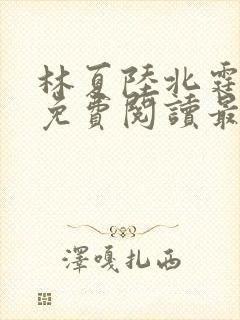 林夏陸北霆
免費閱讀最
澤嘎扎西